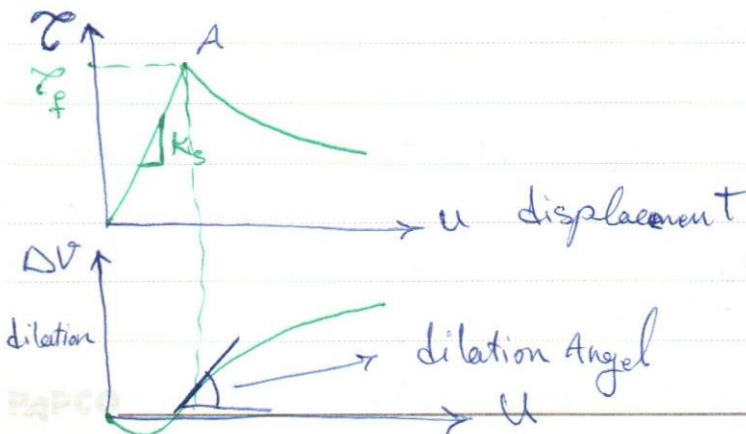 τ
A
τf
Ks
u displacement
ΔV
dilation
dilation Angel
PAPCO
u